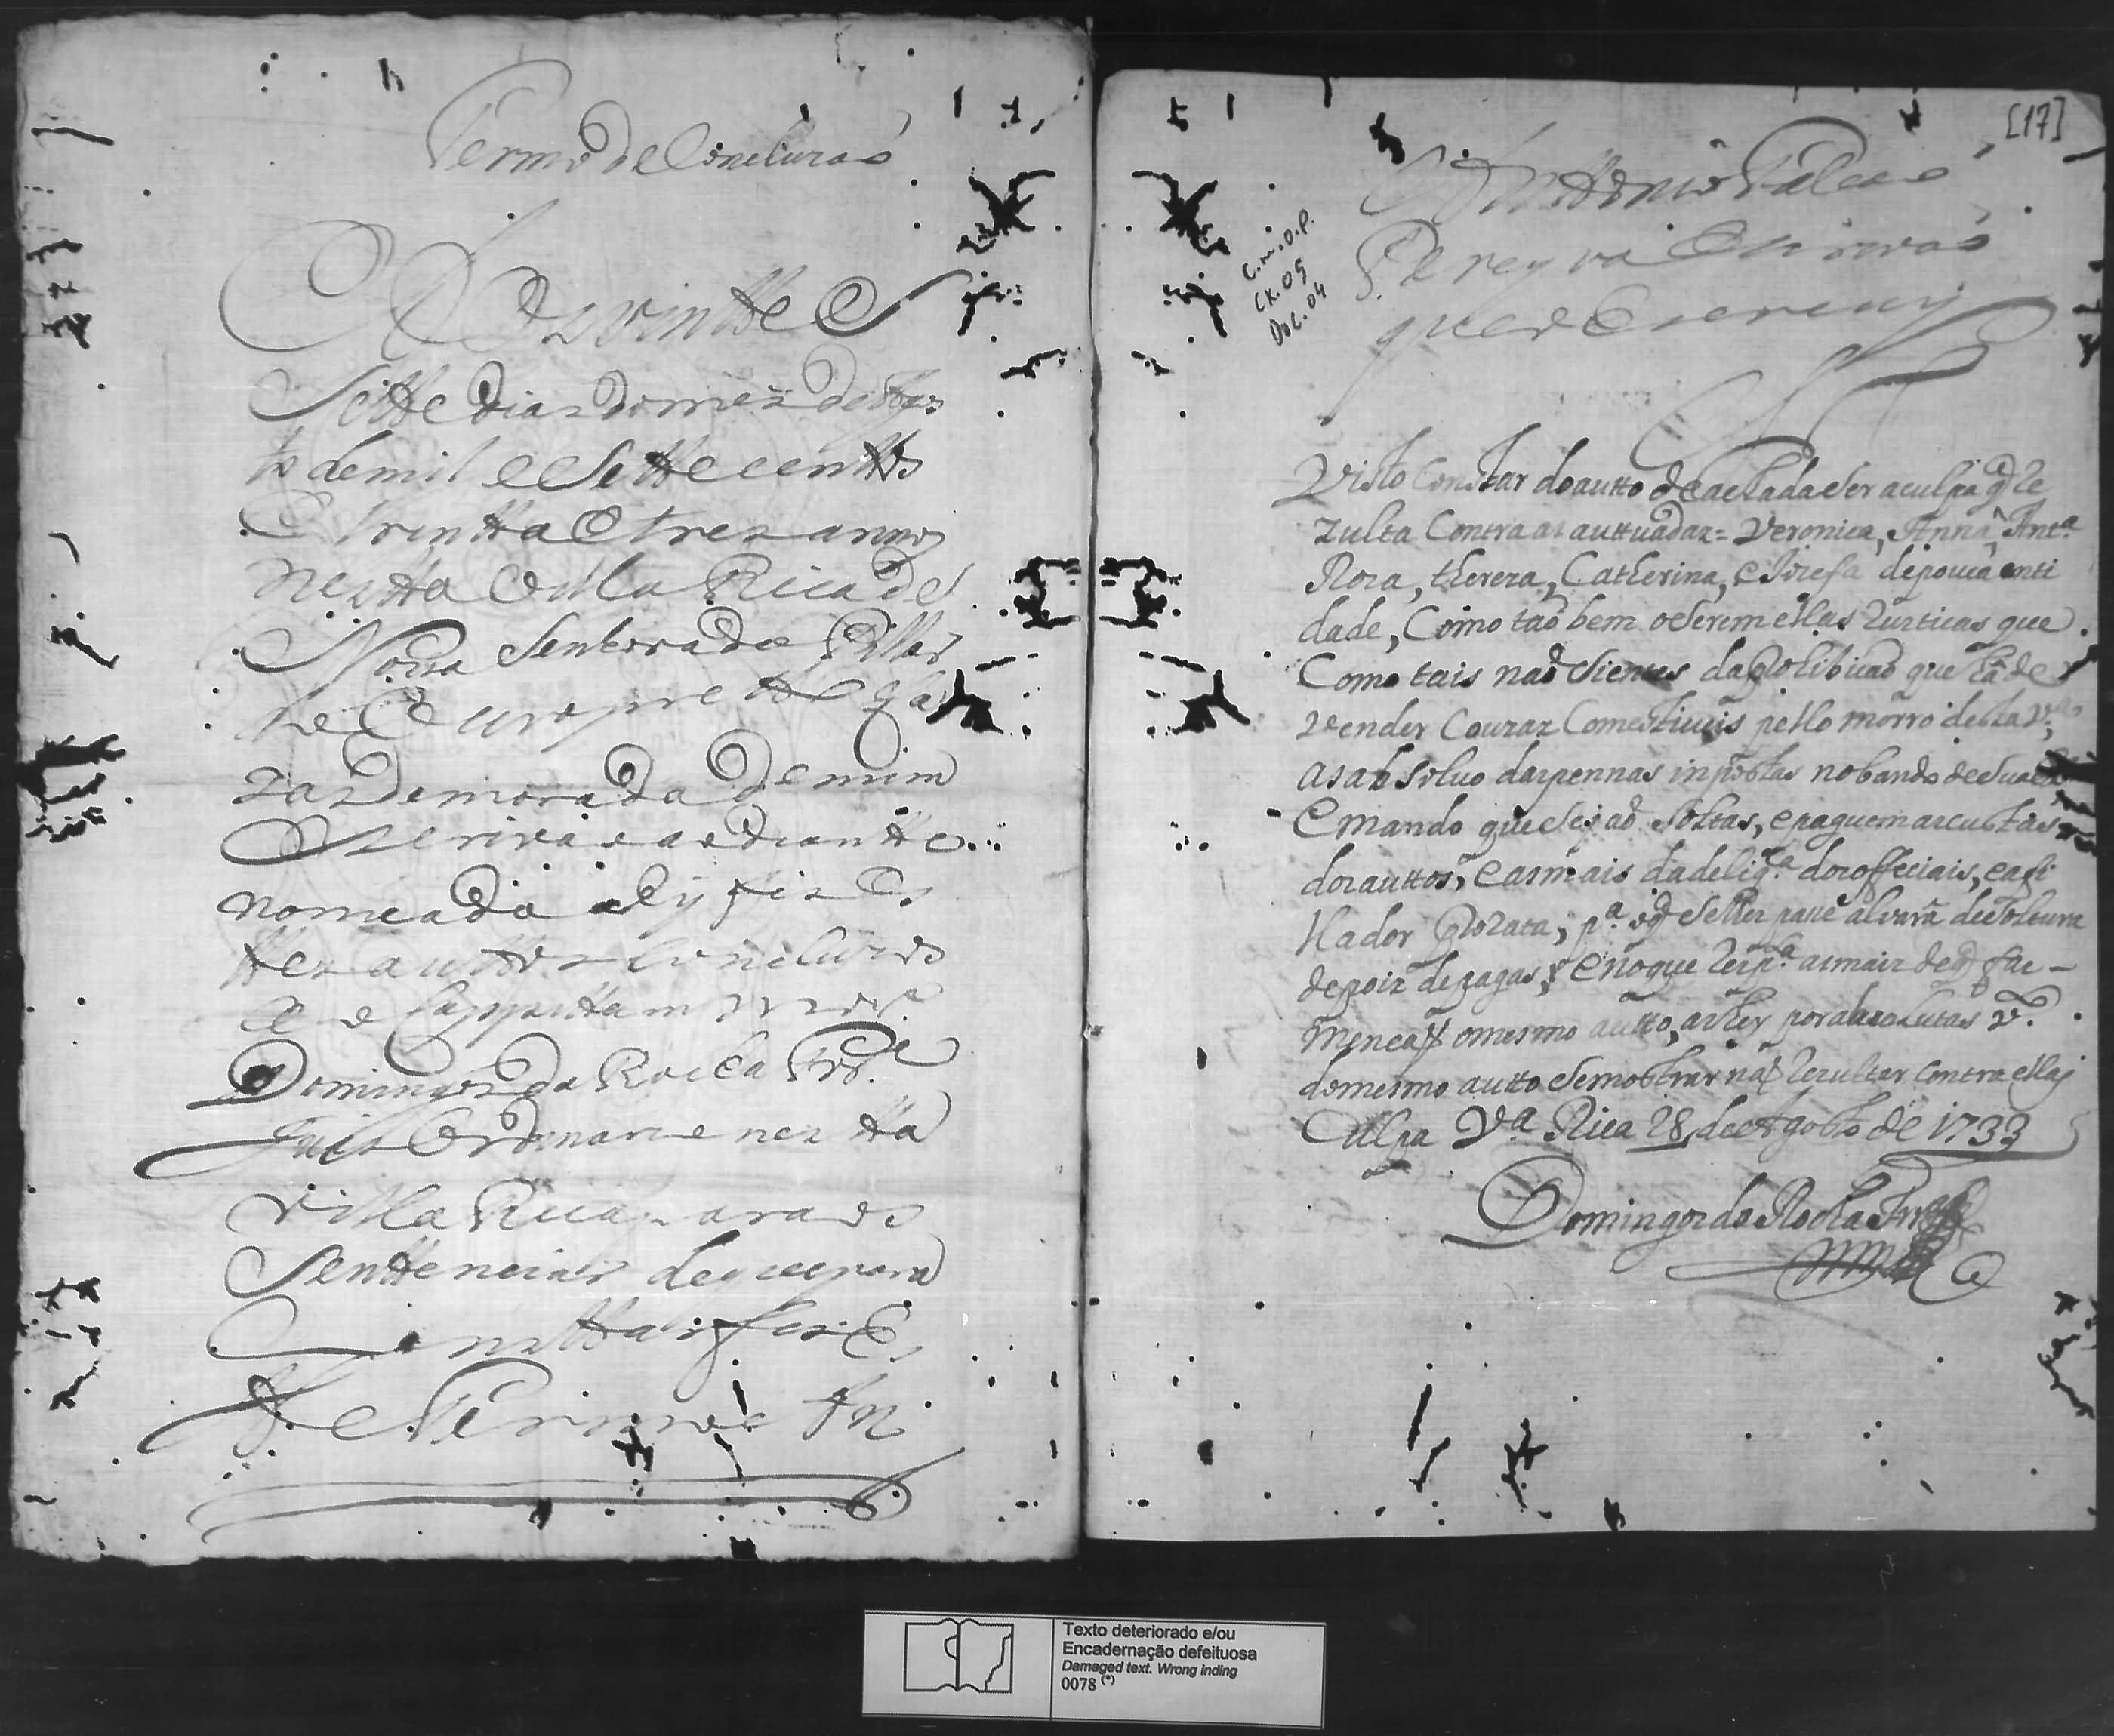 Termo de Concluzaó
Aos vintte e
Sette dias do mez de Agos
to de mil e Sette centtos
e trintta e tres annos
nesta Villa Rica de
Nossa Senhora do Pillar
de Ouro pretto
zas de morada de mim
Escrivaó ao diantte
nomeado ahy fiz es
tes auttos concluzos
ao
Domingos da Rocha Frr.ª
Juis Ordinario nestta
Villa Rica para os
Senttenciar de que para
Consttar fiz es
te Termo eu An
ttonio Falcaó
Pereyra Escrivaó
que o escrevy
[17]
C.M.O.P.
Cx. 05
Doc. 04
Visto Constar do autto de achada ser a culpa q̃ re
zulta Contra as auttuadas = Veronica, Anna, Ant.ª
Roza, thereza, Catherina, e Jozefa de pouca enti
dade, Como taõ bem o serem ellas rusticas que
Como tais naõ sientes da prohibicaõ que ha de
vender Couzas Comestiveis pello morro desta V.ª,
as absoluo das pennas inpostas no bando de sua
e mando que sejaõ soltas, e paguem as custas
dos auttos, e as mais da delig.ª dos officiais, e asi
llador prorata, p.ª o q̃ se lhes passe alvará de soltura
depois de pagas, e no que resp.ª as mais de q̃ fas
mencaõ o mesmo autto, as hey por absolutas v.º
do mesmo autto se mostrar naõ rezultar contra ellas
Culpa V.ª Rica 28 de Agosto de 1733
Domingos da Rocha Frr.ª
Texto deteriorado e/ou
Encadernação defeituosa
Damaged text. Wrong inding
0078 (*)